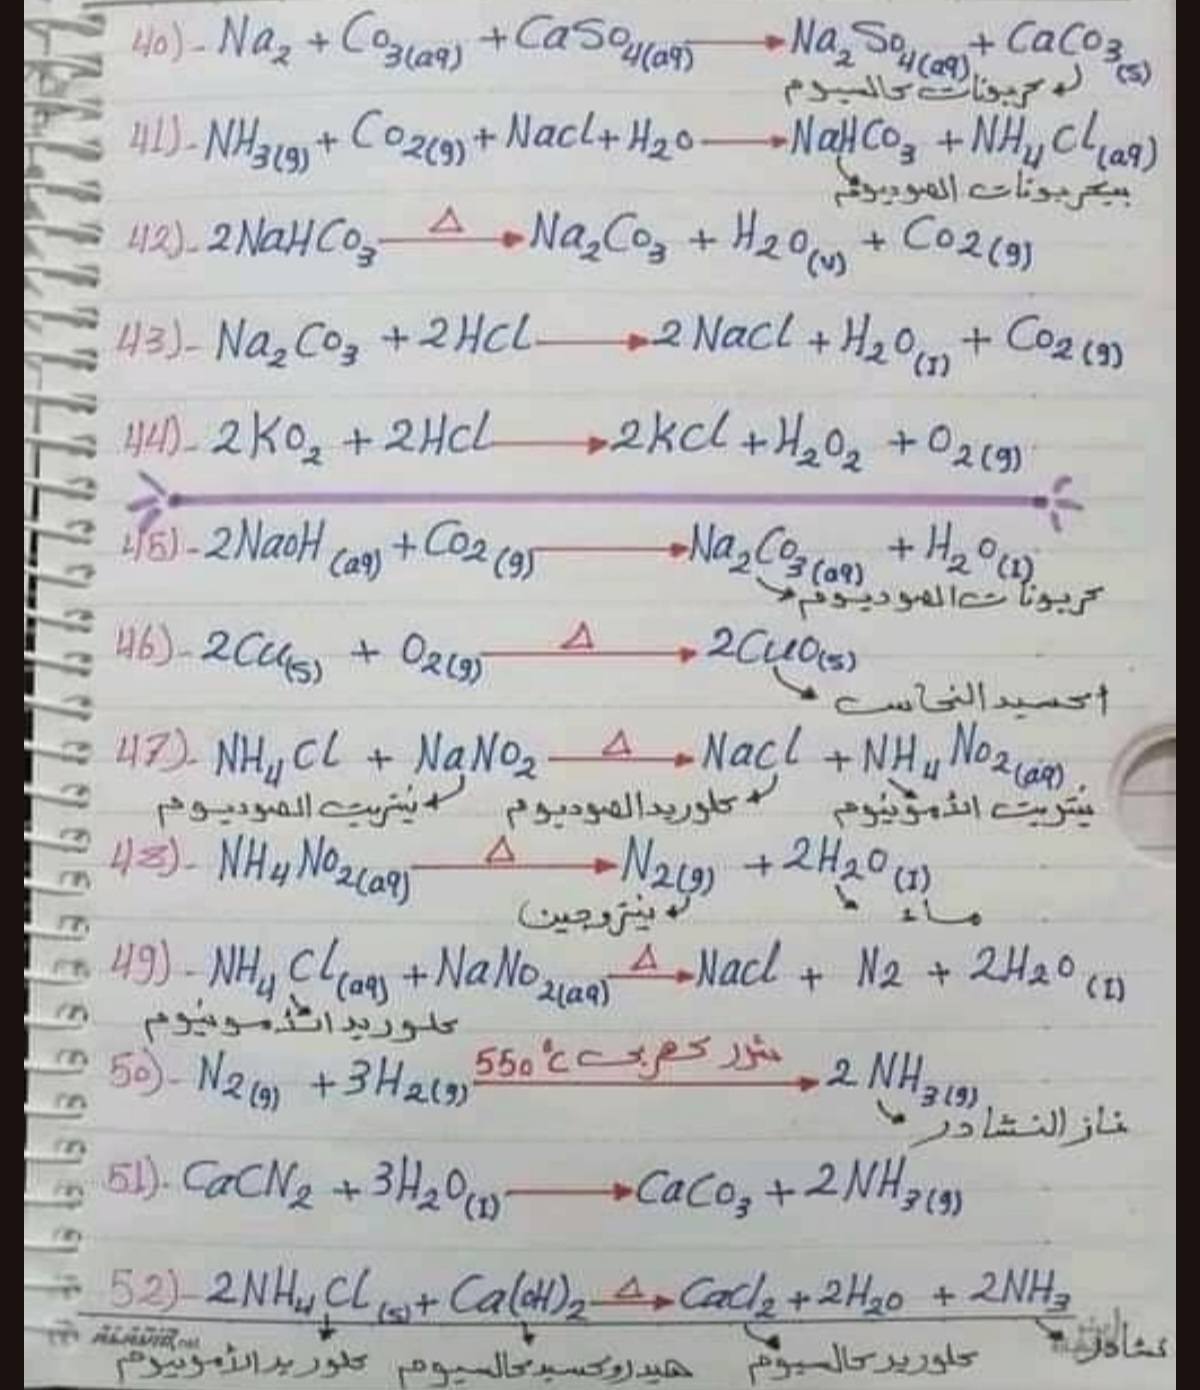 40)- Na₂ + Co₃(aq) + CaSo₄(aq) → Na₂So₄(aq) + CaCo₃(s)
كربونات كالسيوم
41)- NH₃(g) + Co₂(g) + Nacl + H₂o → NaHCo₃ + NH₄Cl(aq)
بيكربونات الصوديوم
42)- 2NaHCo₃ —Δ→ Na₂Co₃ + H₂o(v) + Co₂(g)
43)- Na₂Co₃ + 2HCl → 2Nacl + H₂O(l) + Co₂(g)
44)- 2KO₂ + 2Hcl → 2kcl + H₂O₂ + O₂(g)
45)- 2NaoH(aq) + Co₂(g) → Na₂Co₃(aq) + H₂O(l)
كربونات الصوديوم
46)- 2Cu(s) + O₂(g) —Δ→ 2CuO(s)
اكسيد النحاس
47)- NH₄Cl + NaNO₂ —Δ→ Nacl + NH₄No₂(aq)
نيتريت الصوديوم كلوريد الصوديوم نيتريت الأمونيوم
48)- NH₄No₂(aq) —Δ→ N₂(g) + 2H₂o(l)
نيتروجين ماء
49)- NH₄Cl(aq) + NaNo₂(aq) —Δ→ Nacl + N₂ + 2H₂o(l)
كلوريد الأمونيوم
50)- N₂(g) + 3H₂(g) —550°c شرر كهربي→ 2NH₃(g)
غاز النشادر
51)- CaCN₂ + 3H₂O(l) → CaCo₃ + 2NH₃(g)
52)- 2NH₄Cl(s) + Ca(oH)₂ —Δ→ Cacl₂ + 2H₂o + 2NH₃
كلوريد الأمونيوم هيدروكسيد كالسيوم كلوريد كالسيوم نشادر